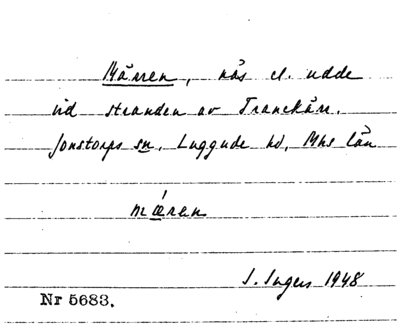 Märren, näs el. udde
vid stranden av Tranekärr.
Jonstorps sn, Luggude hd, Mhs län
mǽren
I. Ingers 1948
Nr 5683.